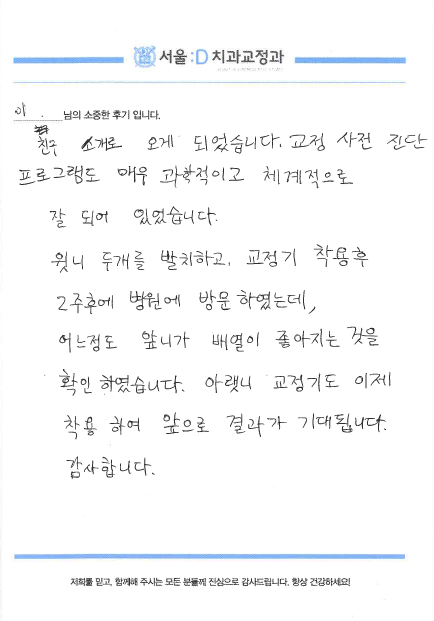 서울:D치과교정과
이 . 님의 소중한 후기 입니다.
친구 소개로 오게 되었습니다. 교정 사전 진단
프로그램도 매우 과학적이고 체계적으로
잘 되어 있었습니다.
윗니 두개를 발치하고, 교정기 착용후
2주후에 병원에 방문하였는데,
어느정도 앞니가 배열이 좋아지는 것을
확인하였습니다. 아랫니 교정기도 이제
착용 하여 앞으로 결과가 기대됩니다.
감사합니다.
저희를 믿고, 함께해 주시는 모든 분들께 진심으로 감사드립니다. 항상 건강하세요!